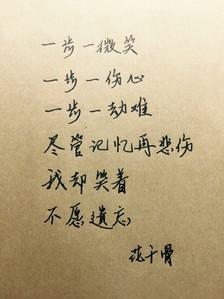 一步一微笑
一步一伤心
一步一劫难
尽管记忆再悲伤
我却笑着
不愿遗忘
花千骨